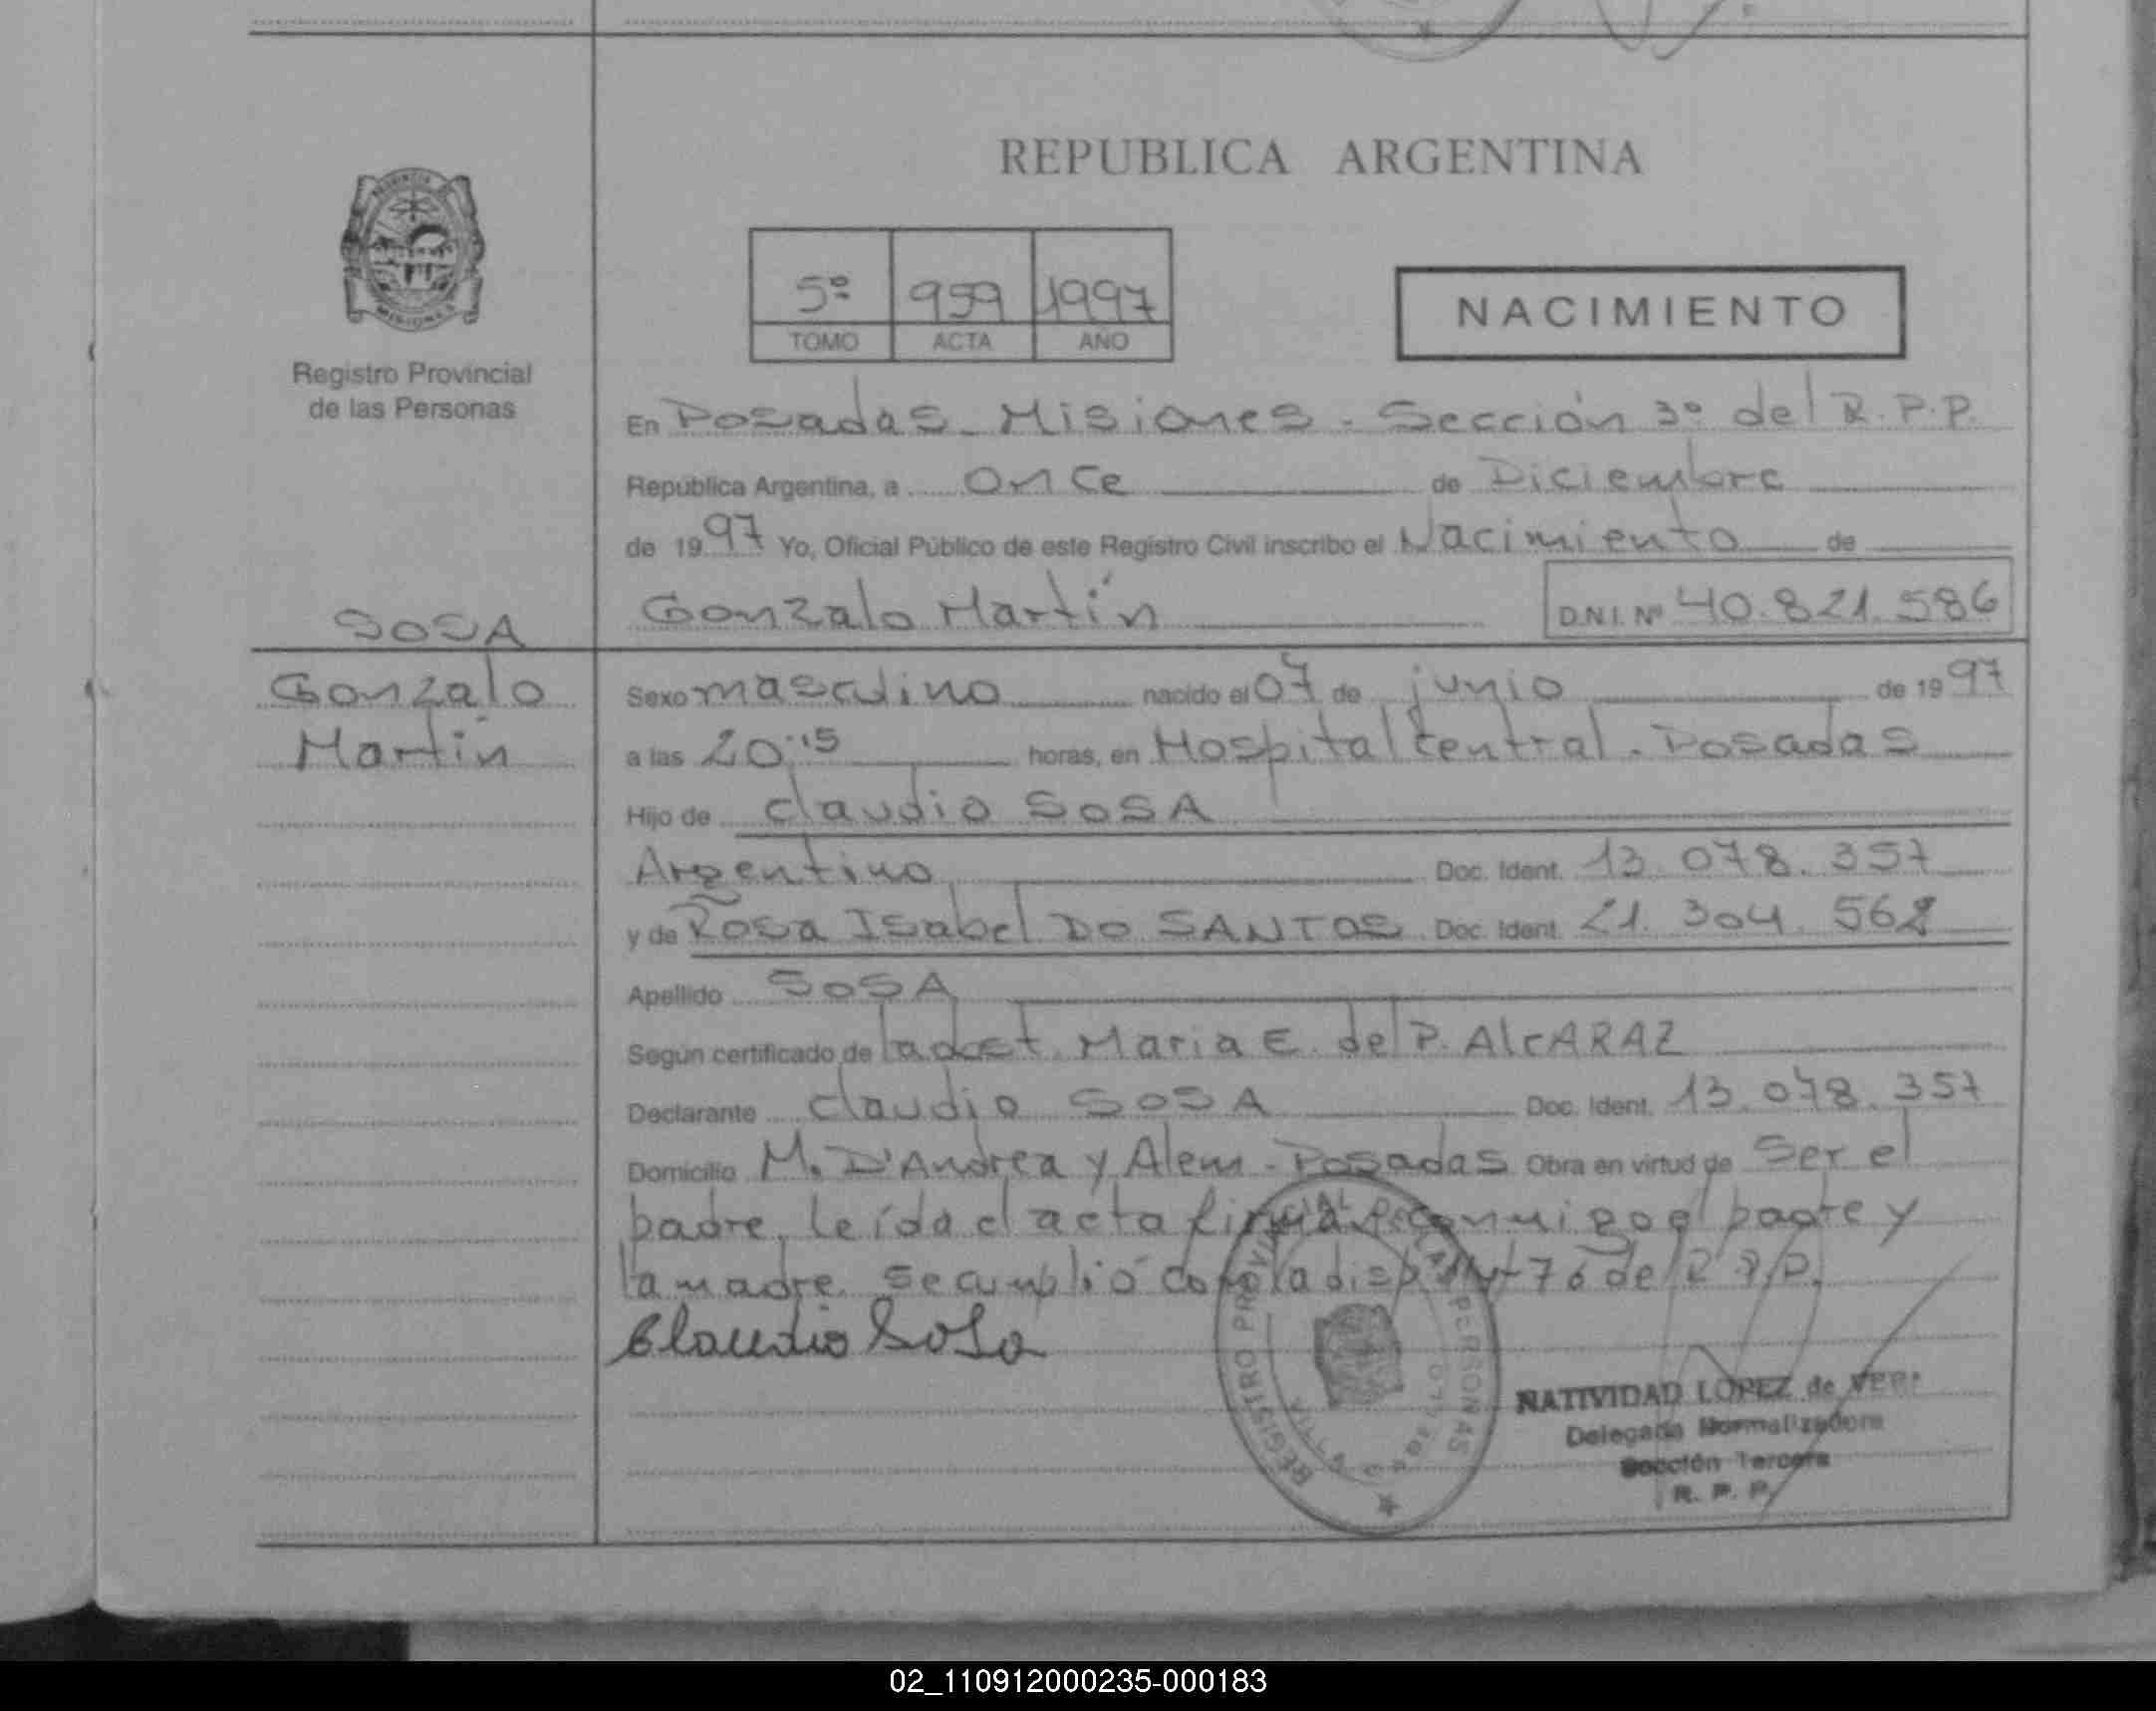 REPUBLICA ARGENTINA
PROVINCIA DE
MISIONES
Registro Provincial
de las Personas
5º 959 1997
TOMO ACTA AÑO
NACIMIENTO
En Posadas - Misiones - Sección 3º del R.P.P.
República Argentina, a once de Diciembre
de 1997 Yo, Oficial Público de este Registro Civil inscribo el Nacimiento de
Gonzalo Martín D.N.I. Nº 40.821.586
SOSA
Gonzalo
Martín
Sexo masculino nacido el 07 de junio de 1997
a las 20:15 horas, en Hospital Central - Posadas
Hijo de Claudio SOSA
Argentino Doc. Ident. 13.078.357
y de Rosa Isabel DO SANTOS Doc. Ident. 21.304.562
Apellido SOSA
Según certificado de la Maria E. del P. AlcARAZ
Declarante Claudio SOSA Doc. Ident. 13.078.357
Domicilio M. D'Andrea y Alem - Posadas Obra en virtud de Ser el
padre, leída el acta firma conmigo el padre y
la madre. Se cumplió con la disp. 76 del R.P.P.
Claudio Sosa
REGISTRO PROVINCIAL DE LAS PERSONAS
NATIVIDAD LOPEZ de
Delegada Normalizadora
Sección Tercera
R. P. P.
02_110912000235-000183